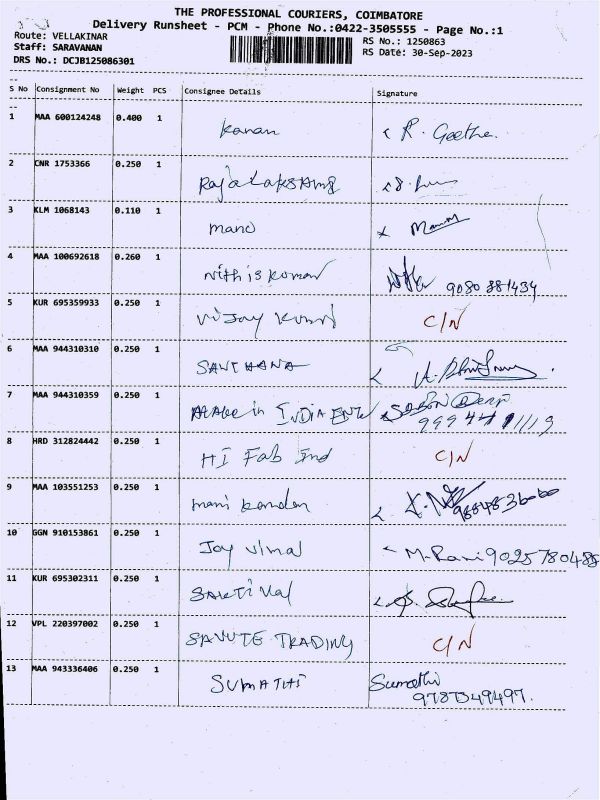 THE PROFESSIONAL COURIERS, COIMBATORE
Delivery Runsheet - PCM - Phone No.:0422-3505555 - Page No.:1
Route: VELLAKINAR
RS No.: 1250863
Staff: SARAVANAN
RS Date: 30-Sep-2023
DRS No.: DCJB125086301
S No Consignment No Weight PCS Consignee Details Signature
1 MAA 600124248 0.400 1 Kanan R. Geetha.
2 CNR 1753366 0.250 1
3 KLM 1068143 0.110 1 mano
4 MAA 100692618 0.260 1 Nithis Komar 9080881434
5 KUR 695359933 0.250 1 Vijay Kumar C/N
6 MAA 944310310 0.250 1 SANTHANA
7 MAA 944310359 0.250 1 INDIA
8 HRD 312824442 0.250 1 HI Fab Ind C/N
9 MAA 103551253 0.250 1 mani kandan
10 GGN 910153861 0.250 1 Joy vimal M. Rani 9025780485
11 KUR 695302311 0.250 1 SAKTIVAL
12 VPL 220397002 0.250 1 SANUTE TRADING C/N
13 MAA 943336406 0.250 1 SUMATHI Sumathi